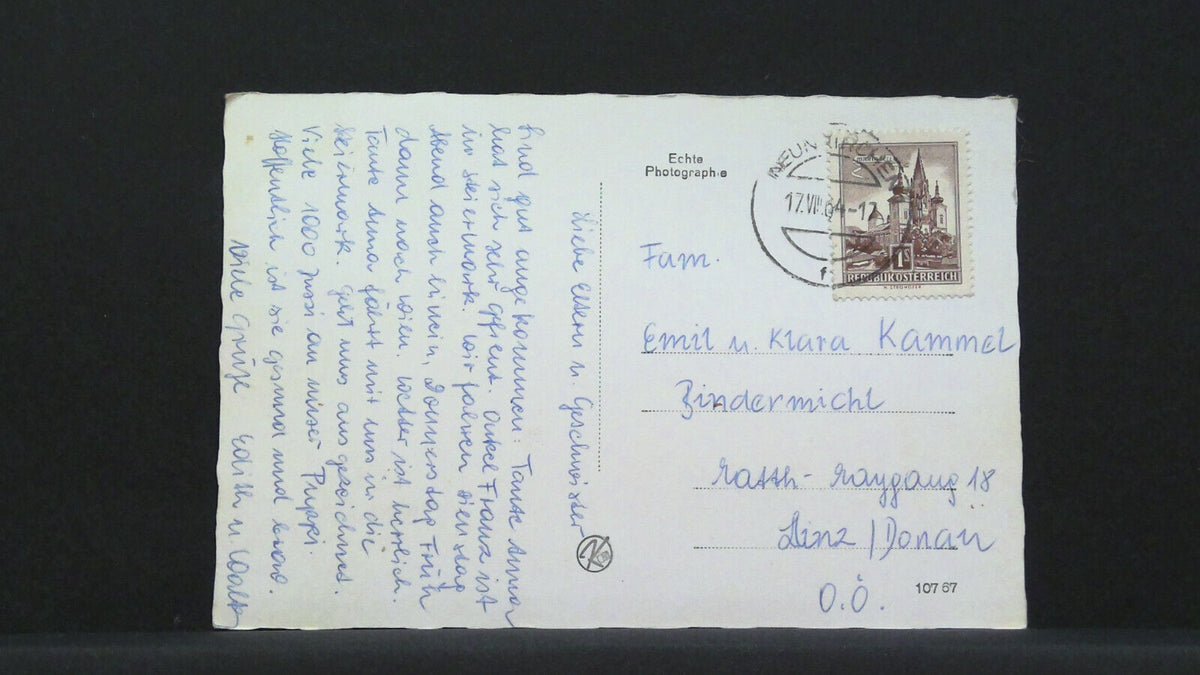 Liebe Eltern u. Geschwister
Sind gut angekommen. Tante Anna
hat sich sehr gefreut. Onkel Franz ist
in Steiermark. Wir fahren Dienstag
Abend auch hinein, Donnerstag Früh
dann nach Wien. Wetter ist herrlich.
Tante Anna fährt mit uns in die
Steiermark. Geht uns ausgezeichnet.
Viele 1000 Bussi an unser Puppi.
Hoffentlich ist sie gesund und brav.
Viele Grüße Edith u. Walter
Echte
Photographie
NEUNKIRCHEN
17.VIII.64-17
f
1S
REPUBLIK ÖSTERREICH
Fam.
Emil u. Klara Kammel
Bindermichl
Ratth-Raygang 18
Linz/Donau
O.Ö.
107 67